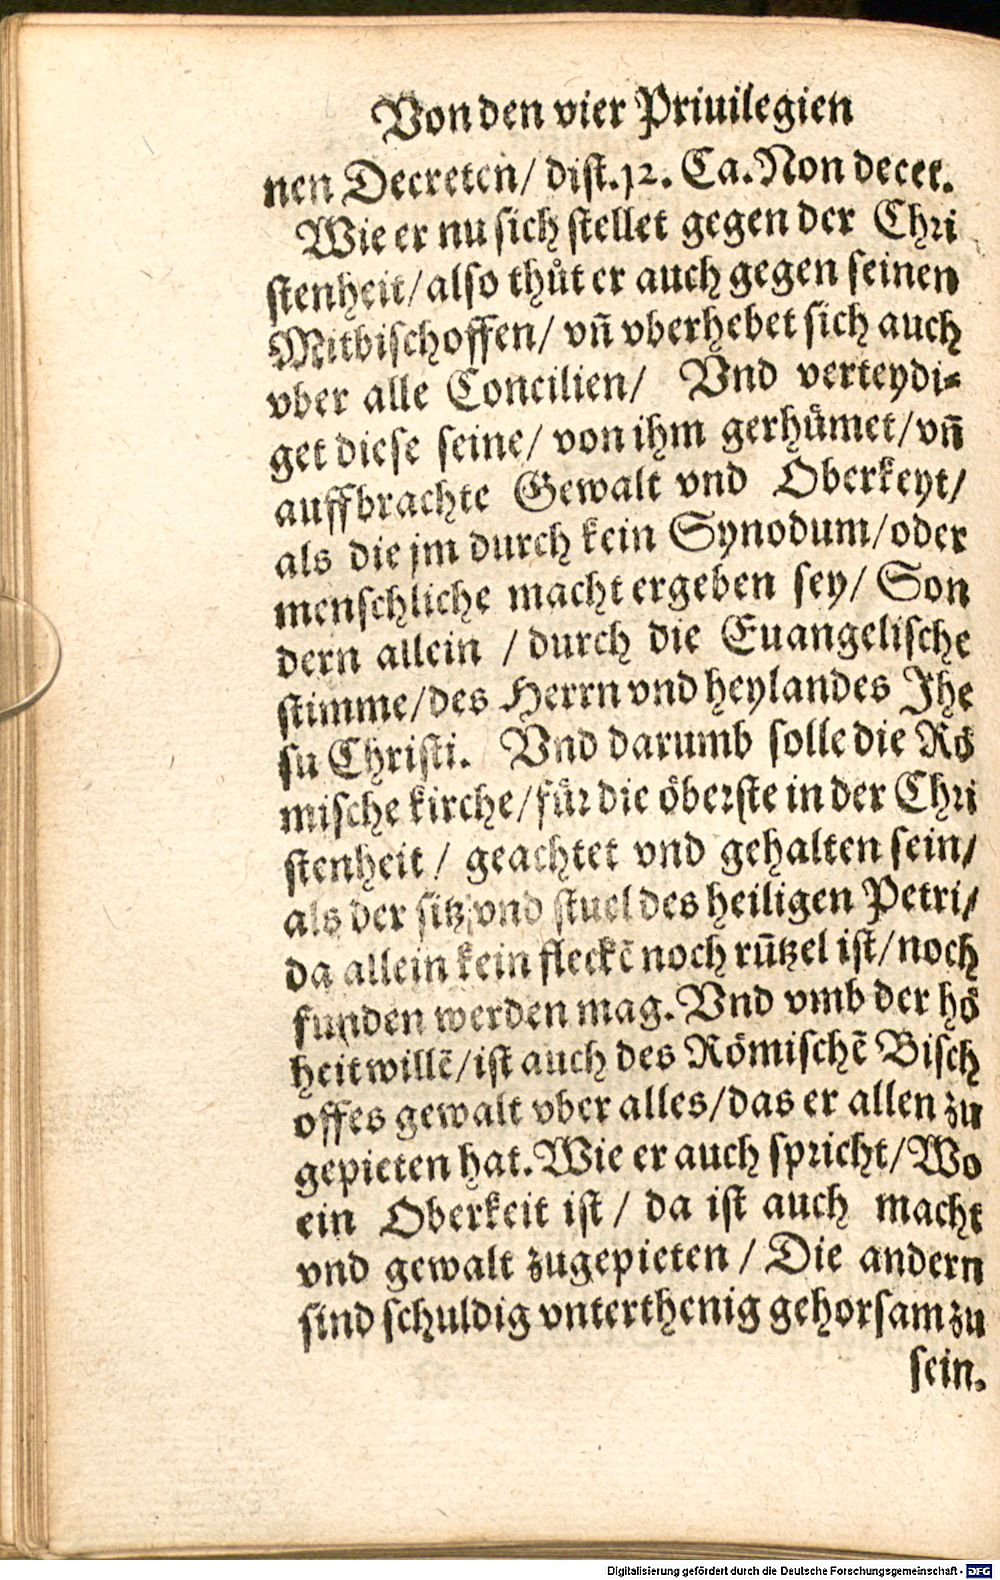 Von den vier Priuilegien
nen Decreten/ dist.12. Ca. Non decet.
Wie er nu sich stellet gegen der Chri
stenheit/ also thůt er auch gegen seinen
Mitbischoffen/ vñ vberhebet sich auch
vber alle Concilien/ Vnd verteydi⸗
get diese seine/ von ihm gerhůmet/ vñ
auffbrachte Gewalt vnd Oberkeyt/
als die jm durch kein Synodum/ oder
menschliche macht ergeben sey/ Son
dern allein / durch die Euangelische
stimme/ des Herrn vnd heylandes Jhe
su Christi. Vnd darumb solle die Rö
mische kirche/ für die öberste in der Chri
stenheit / geachtet vnd gehalten sein/
als der sitz vnd stuel des heiligen Petri/
da allein kein fleckē noch rūtzel ist/ noch
funden werden mag. Vnd vmb der hö
heit willē/ ist auch des Römischē Bisch
offes gewalt vber alles/ das er allen zu
gepieten hat. Wie er auch spricht/ Wo
ein Oberkeit ist / da ist auch macht
vnd gewalt zugepieten / Die andern
sind schuldig vnterthenig gehorsam zu
sein.
Digitalisierung gefördert durch die Deutsche Forschungsgemeinschaft - DFG